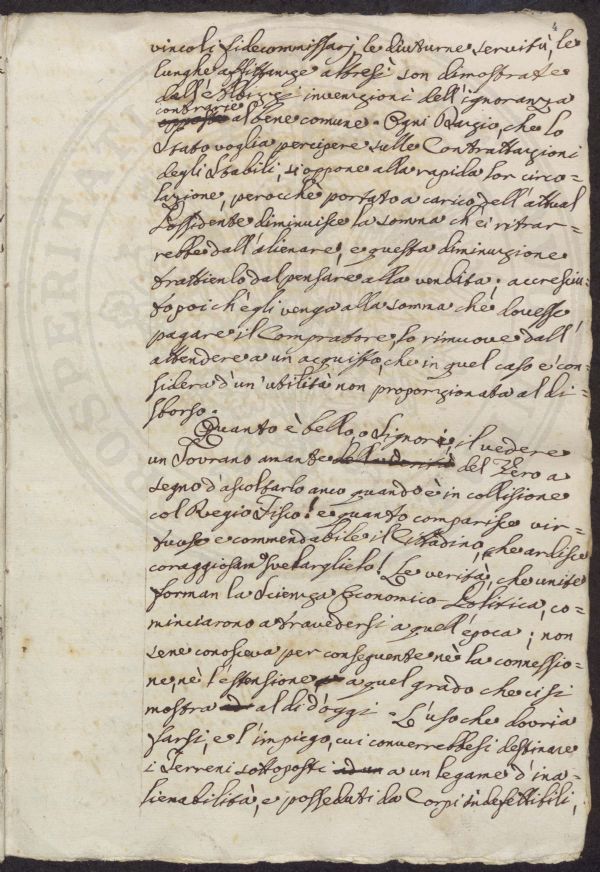 4
vincoli fidecommissarj, le diuturne servitù, le
lunghe affittanze altresì son dimostrate
dall'é Sbozzi invenzioni dell'ignoranza
contrarie
al bene comune. Ogni Dazio, che lo
Stato voglia percipere sulle Contrattazioni
degli Stabili, s'oppone alla rapida lor circo=
lazione, perocchè portato a carico dell'attual
Possidente diminuisce la somma ch'ei ritrar=
rebbe dall'alienare, e questa diminuzione
trattienlo dal pensare alla vendita; accresciu=
to poi ch'egli venga alla somma che dovesse
pagare il Compratore, lo rimuove dall'
attendere a un acquisto, che in quel caso e' con=
sidera d'un utilità non proporzionata al di=
sborso.
Quanto è bello, o Signori, il vedere
un Sovrano amante del Vero a
segno d'ascoltarlo anco quando è in collisione
col Regio Fisco! e quanto comparisce vir=
tuoso e commendabile il Cittadino, che ardisce
coraggiosam.e svelarglielo! Le verità, che unite
forman la Scienza Economico-Politica, co=
minciarono a travedersi a quell'epoca; non
sene conosceva per conseguente nè la connessio=
ne, nè l'estensione a quel grado che ci si
mostra al dì d'oggi. L'uso che dovria
farsi, e l'impiego, cui converrebbesi destinare
i Terreni sottoposti a un legame d'ina=
lienabilità, e posseduti da Corpi indefettibili,